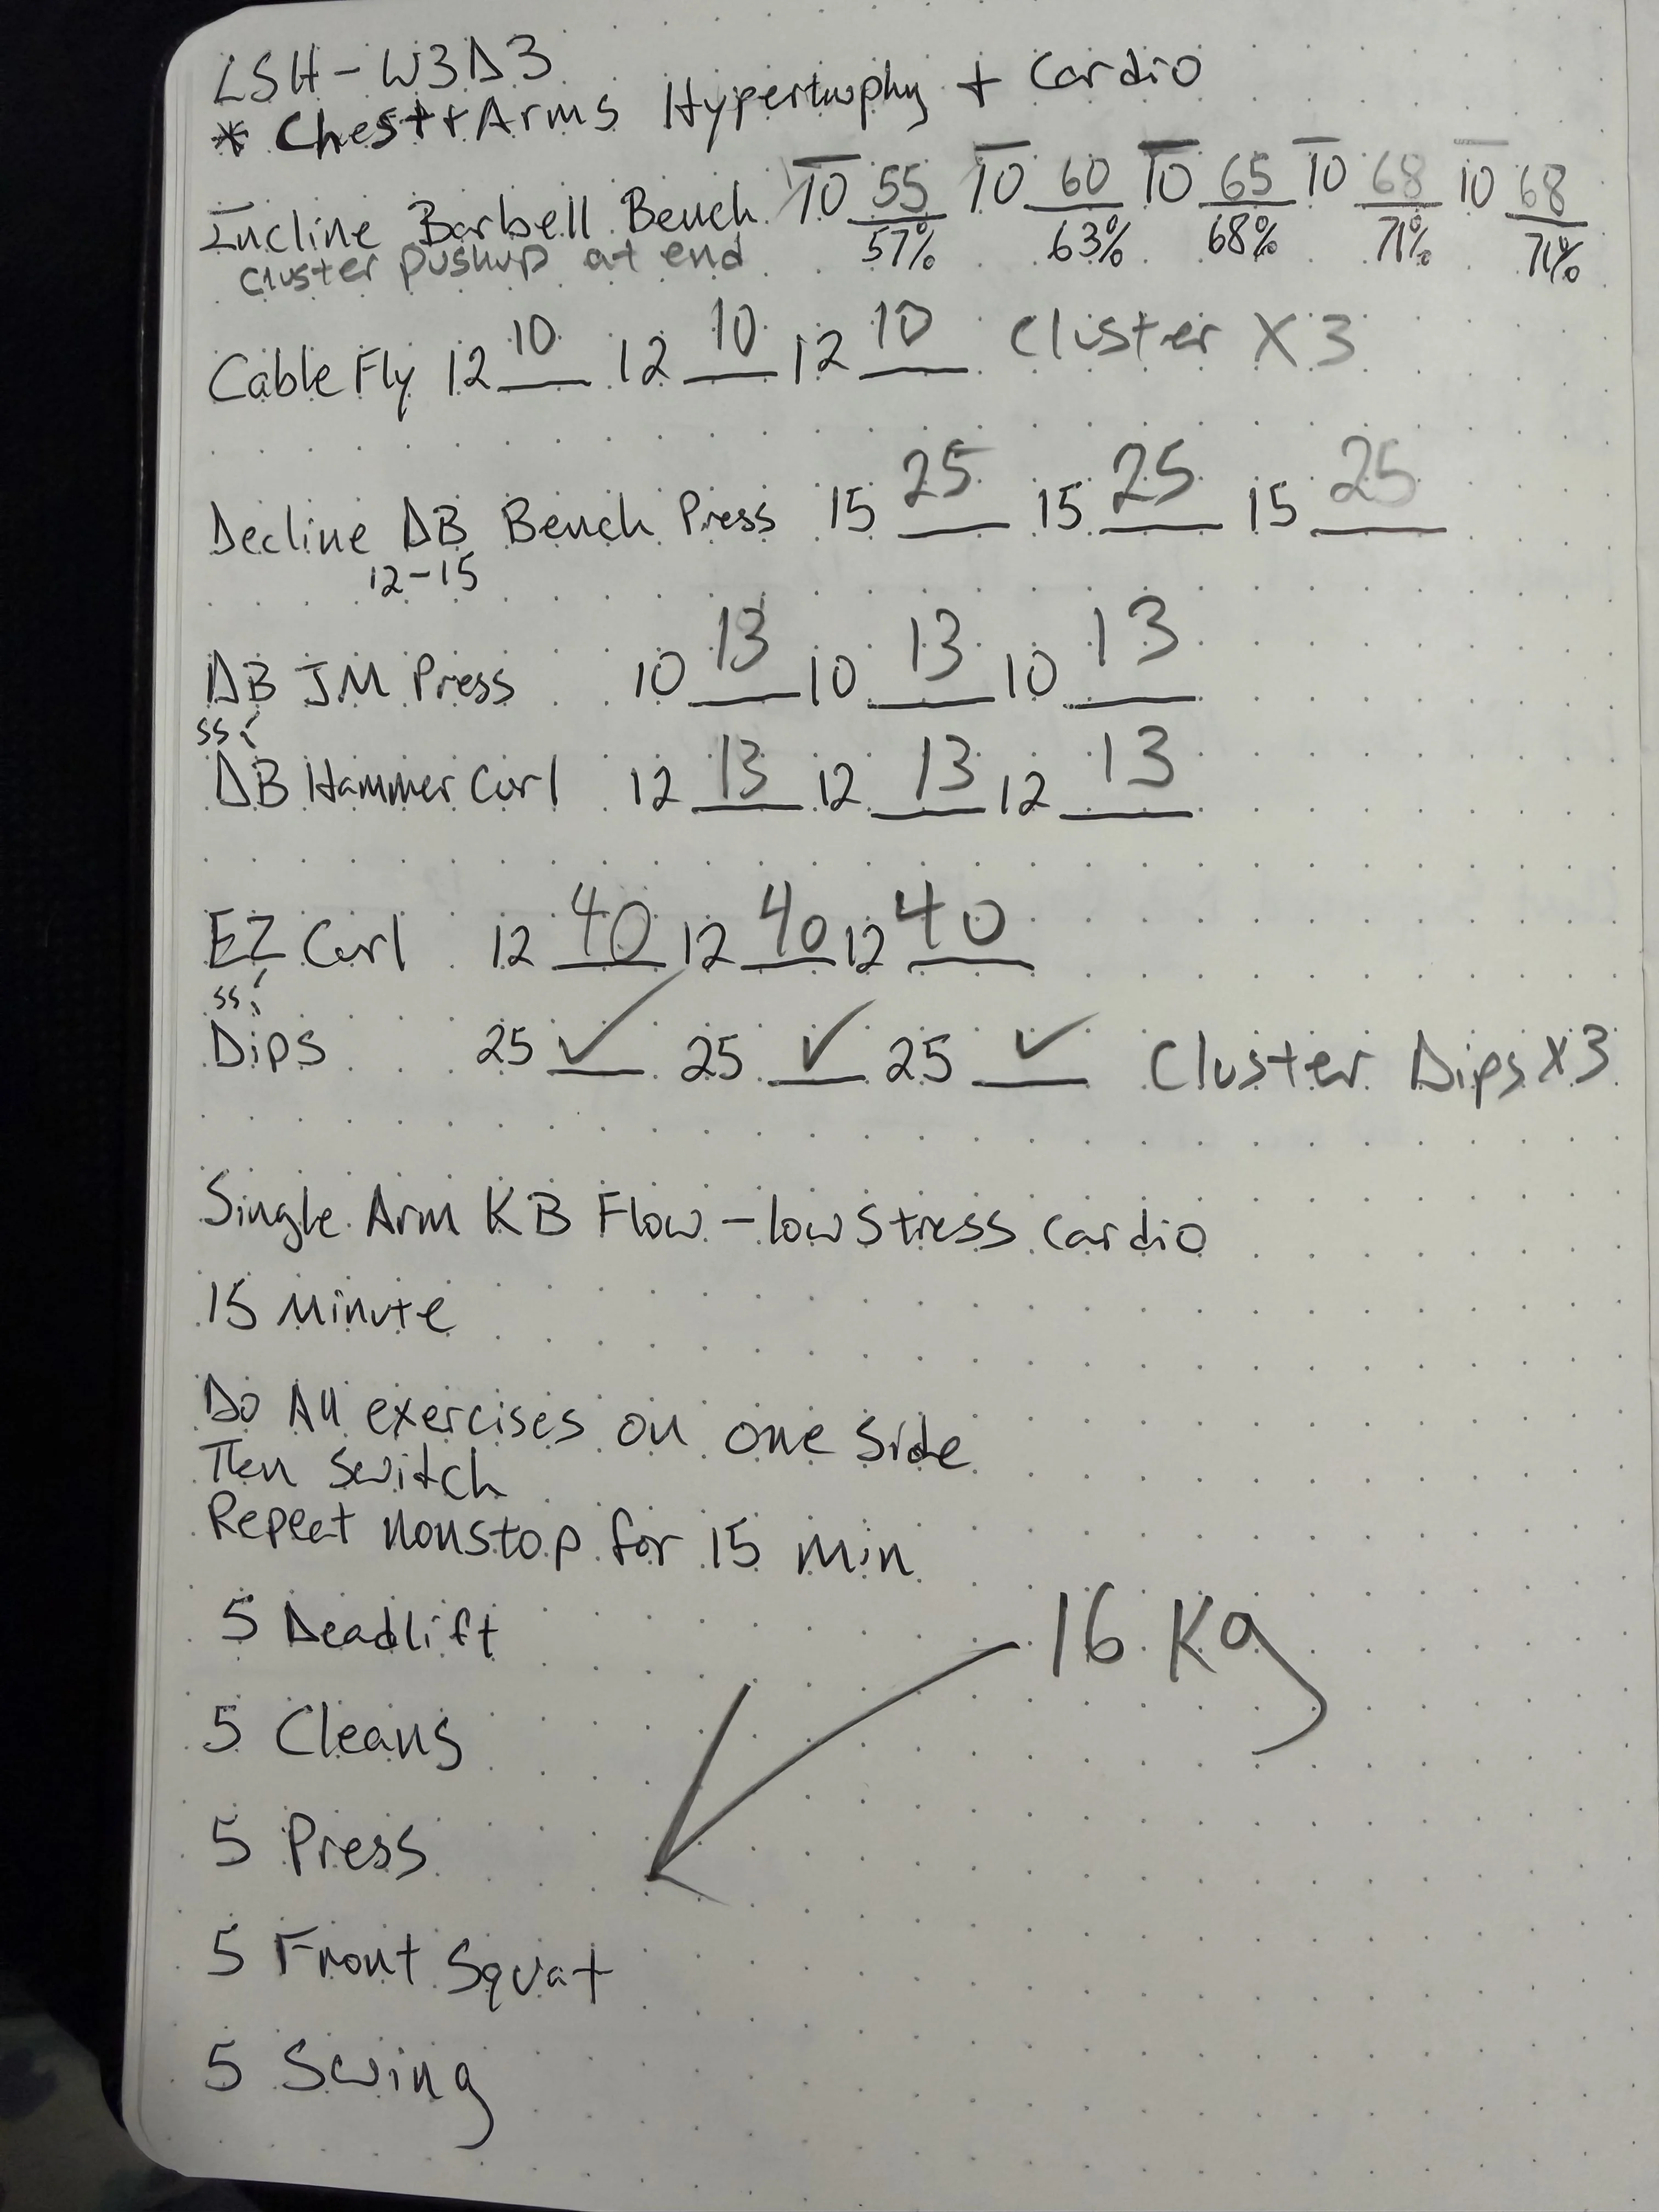 LSH - W3D3
* Chest + Arms Hypertrophy + Cardio
Incline Barbell Bench 10 55 10 60 10 65 10 68 10 68
57% 63% 68% 71% 71%
Cluster pushup at end
Cable Fly 12 10 12 10 12 10 Cluster X 3
Decline DB Bench Press 15 25 15 25 15 25
12-15
DB JM Press 10 13 10 13 10 13
SS:
DB Hammer Curl 12 13 12 13 12 13
EZ Curl 12 40 12 40 12 40
SS:
Dips 25 ✓ 25 ✓ 25 ✓ Cluster Dips X3
Single Arm KB Flow - low stress cardio
15 Minute
Do All exercises on one side
Then switch
Repeat nonstop for 15 min
5 Deadlift
16 Kg
5 Cleans
5 Press
5 Front Squat
5 Swing